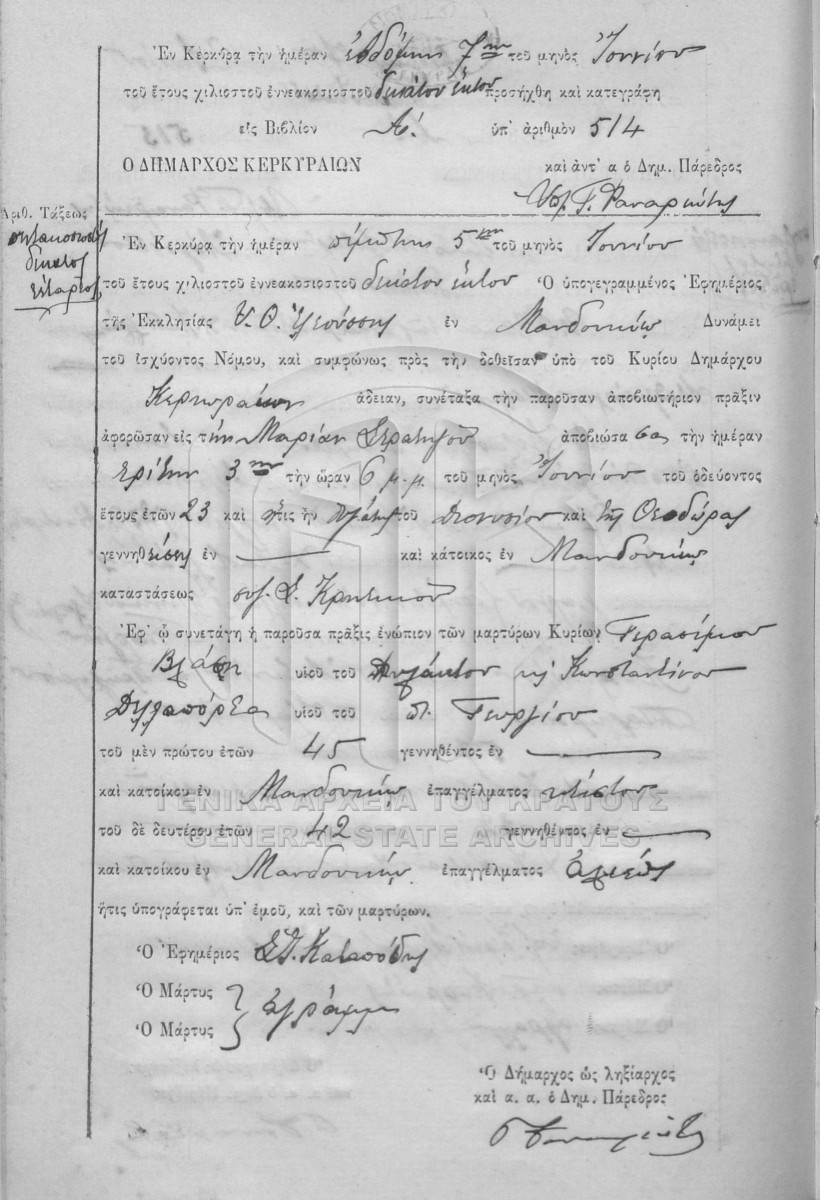 Ἐν Κερκύρᾳ τὴν ἡμέραν ἑβδόμην 7ην τοῦ μηνὸς Ἰουνίου
τοῦ ἔτους χιλιοστοῦ ἐννεακοσιοστοῦ δεκάτου ἕκτου προσήχθη καὶ κατεγράφη
εἰς Βιβλίον Α! ὑπ' ἀριθμὸν 514
Ο ΔΗΜΑΡΧΟΣ ΚΕΡΚΥΡΑΙΩΝ καὶ ἀντ' α ὁ Δημ. Πάρεδρος
Γ. Φαναριώτης
Αριθ. Τάξεως
πεντακοσιοστὸς
δέκατος
τέταρτος
Ἐν Κερκύρᾳ τὴν ἡμέραν πέμπτην 5ην τοῦ μηνὸς Ἰουνίου
τοῦ ἔτους χιλιοστοῦ ἐννεακοσιοστοῦ δεκάτου ἕκτου Ὁ ὑπογεγραμμένος Ἐφημέριος
τῆς Ἐκκλησίας Υ. Θ. Ἐλεούσης ἐν Μανδουκίῳ Δυνάμει
τοῦ ἰσχύοντος Νόμου, καὶ συμφώνως πρὸς τὴν δοθεῖσαν ὑπὸ τοῦ Κυρίου Δημάρχου
Κερκυραίων ἄδειαν, συνέταξα τὴν παροῦσαν ἀποβιωτήριον πρᾶξιν
ἀφορῶσαν εἰς τὴν Μαρίαν Στρατηγοῦ ἀποβιώσασα τὴν ἡμέραν
τρίτην 3ην τὴν ὥραν 6 μ.μ. τοῦ μηνὸς Ἰουνίου τοῦ ὁδεύοντος
ἔτους ἐτῶν 23 καὶ ἥτις ἦν τοῦ Διονυσίου καὶ τῆς Θεοδώρας
γεννηθείσης ἐν — καὶ κάτοικος ἐν Μανδουκίῳ
καταστάσεως συζ. Σ. Κρητικοῦ
Ἐφ' ᾧ συνετάγη ἡ παροῦσα πρᾶξις ἐνώπιον τῶν μαρτύρων Κυρίων Γερασίμου
Βλάση υἱοῦ τοῦ κὴ Κωνσταντίνου
Δελλαπόρτα υἱοῦ τοῦ π. Γεωργίου
τοῦ μὲν πρώτου ἐτῶν 45 γεννηθέντος ἐν —
καὶ κατοίκου ἐν Μανδουκίῳ ἐπαγγέλματος κτίστου
τοῦ δὲ δευτέρου ἐτῶν 42 γεννηθέντος ἐν —
καὶ κατοίκου ἐν Μανδουκίῳ ἐπαγγέλματος ἁλιεὺς
ἥτις ὑπογράφεται ὑπ' ἐμοῦ, καὶ τῶν μαρτύρων.
Ὁ Ἐφημέριος Σ. Καταπόδης
Ὁ Μάρτυς
Ὁ Μάρτυς
ἀγράμμ.
Ὁ Δήμαρχος ὡς ληξίαρχος
καὶ α. α. ὁ Δημ. Πάρεδρος
Γ Φαναριώτης
ΓΕΝΙΚΑ ΑΡΧΕΙΑ ΤΟΥ ΚΡΑΤΟΥΣ
GENERAL STATE ARCHIVES